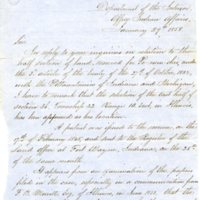 Department of the Interior
Office Indian Affairs
January 29th 1858
Sir
In reply to your inquiries in relation to the
half section of land, reserved for
the 3d article of the treaty of the 27th of October, 1832,
with the Pottawatamies of Indiana and Michigan,
I have to remark that the selection of the east half of
section 26, Township 32 Range 10. East, in Illinois,
has been approved as his location.
A patent was issued to the
27th of February and sent to the Register of the
Land office at Fort Wayne, Indiana, on the 28th
of the same month.
It appears from an examination of the papers
filed in the case, especially in a communication from
Esq. of Illinois, in June that the